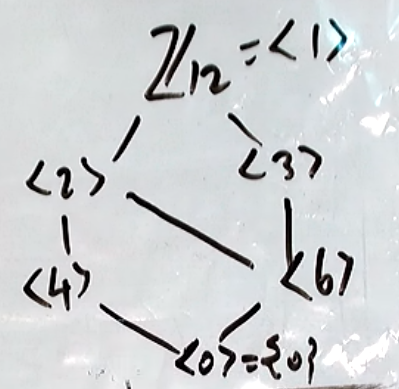 ℤ₁₂ = <1>
<2> <3>
<4> <6>
<0> = {0}